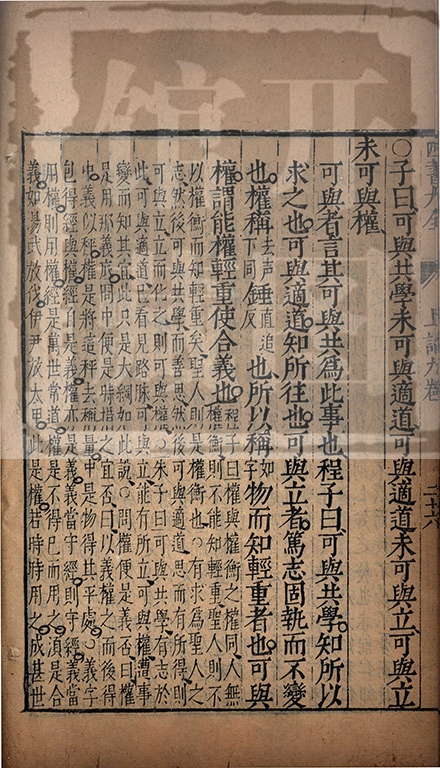 四書大全 上論九卷 二十六
○子曰可與共學未可與適道可與適道未可與立可與立
未可與權
可與者言其可與共為此事也程子曰可與共學知所以
求之也可與適道知所往也可與立者篤志固執而不變
也權稱去聲下同錘直追反也所以稱如字物而知輕重者也可與
權謂能權輕重使合義也程子曰權與權衡之權同人無
權衡則不能知輕重聖人則不
以權衡而知輕重矣聖人則是權衡也○有求為聖人之
志然後可與共學學而善思然後可與適道思而有所得則
可與立立而化之則可與權○朱子曰可與共學有志於
此可與適道已看見路脉可與立能有所立可與權遭事
變而知其宜此只是大綱如此說○問權便是義否曰權
是用那義底問中便是時措之宜否曰以義權之而後得
中義似秤權是將這秤去稱量中是物得其平處○義字
包得經與權經自是義權亦是義義當守經則守經義當
用權則用權經是萬世常道權是不得已而用之須是合
義如湯武放伐伊尹放太甲此是權若時時用之成甚世